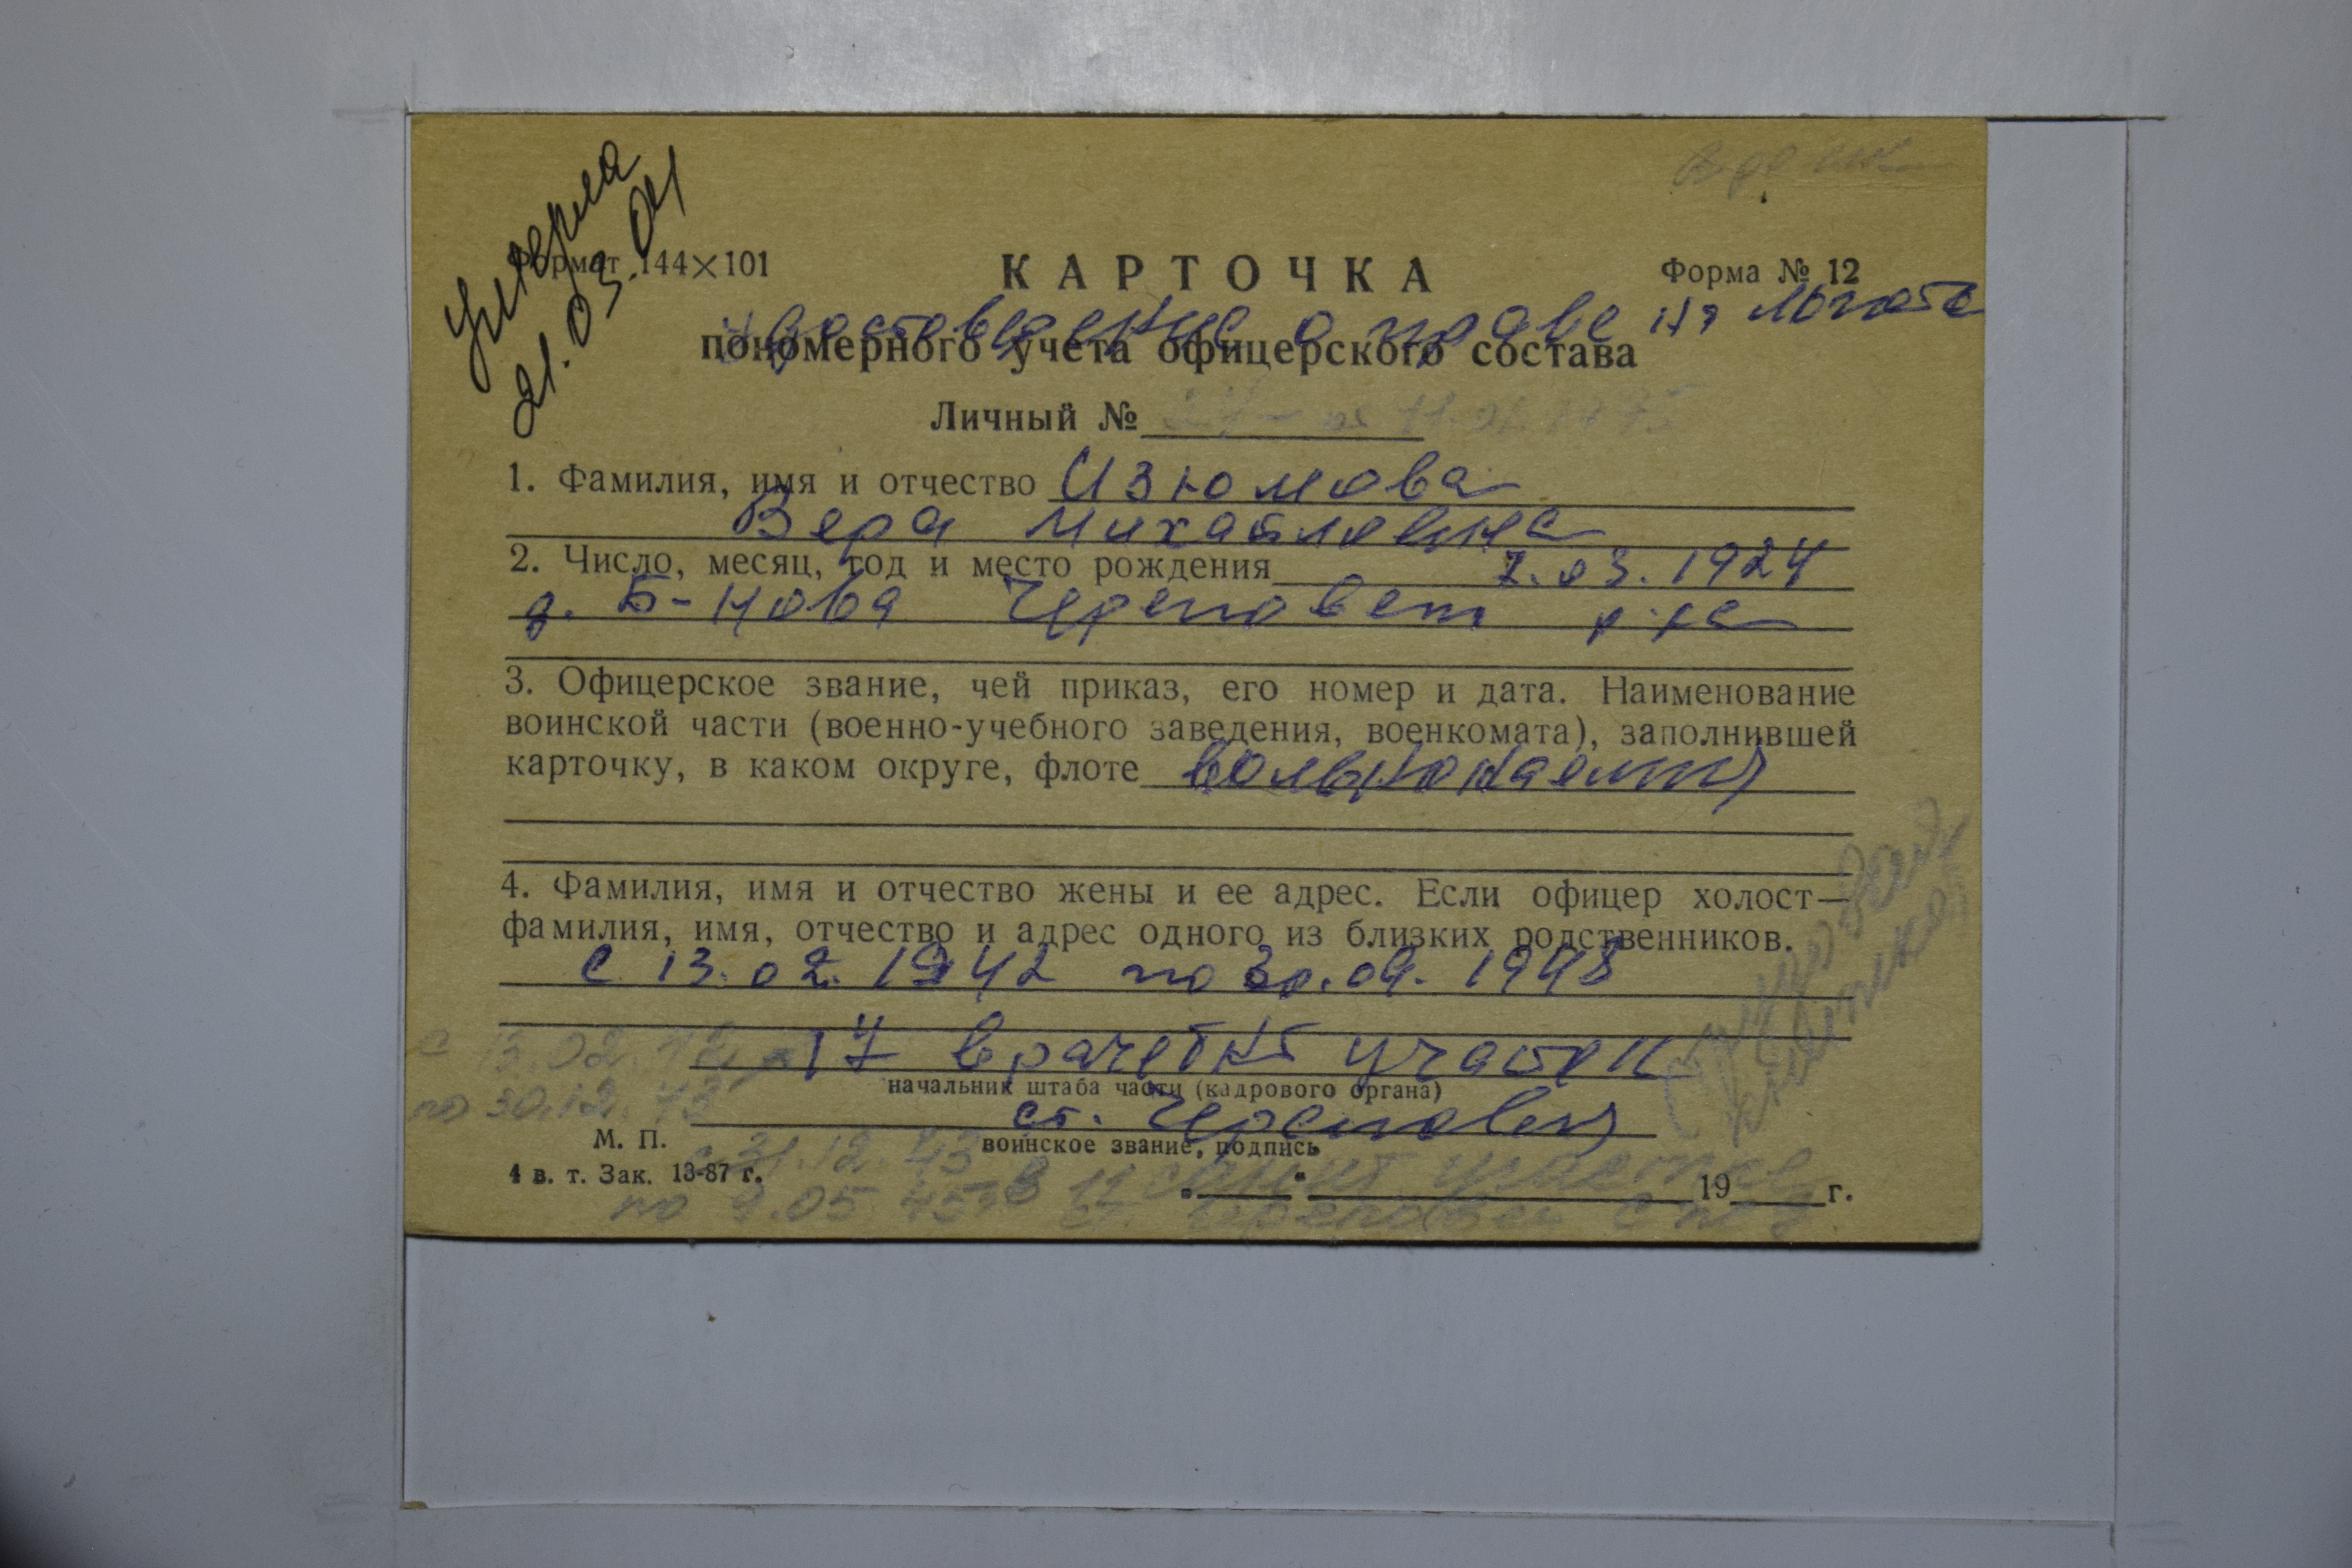 Умерла
21.03.04
Формат 144×101
КАРТОЧКА
Форма № 12
Удостоверение о праве на льготы
пономерного учета офицерского состава
Личный №
1. Фамилия, имя и отчество Изюмова
Вера Михайловна
2. Число, месяц, год и место рождения 7.03.1924
д. Б-Нова Череповец р-на
3. Офицерское звание, чей приказ, его номер и дата. Наименование
воинской части (военно-учебного заведения, военкомата), заполнившей
карточку, в каком округе, флоте вольнонаемная
4. Фамилия, имя и отчество жены и ее адрес. Если офицер холост—
фамилия, имя, отчество и адрес одного из близких родственников.
с 13.02.1942 по 30.09.1943
с 13.02.42
17 врачебн участок
начальник штаба части (кадрового органа)
по 30.12.43
ст. Череповец
М. П.
воинское звание, подпись
с 31.12.43
4 в. т. Зак. 13-87 г.
"___" ___ 19___ г.
по 9.05.45 в 11 санит участке
ст. Череповец